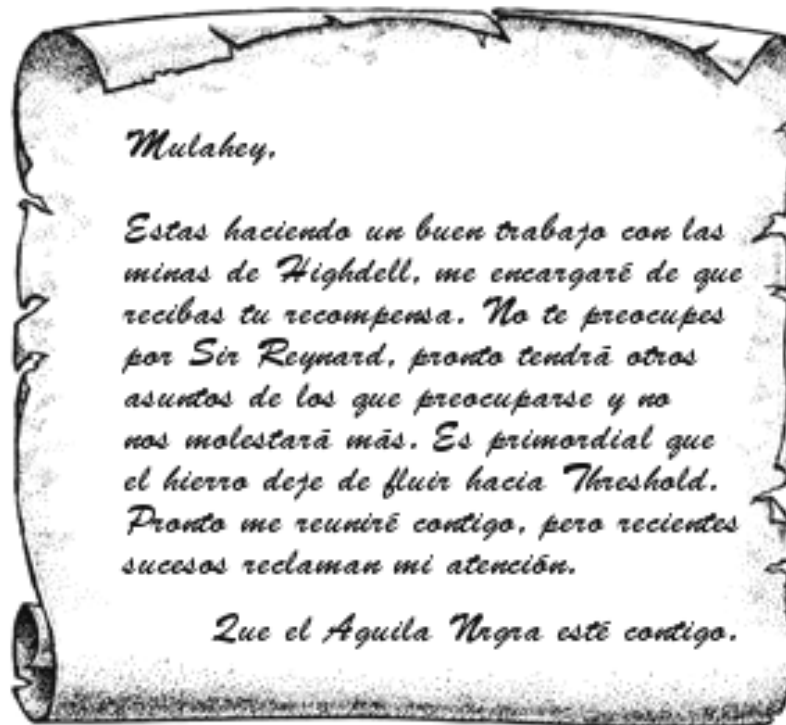 Mulahey,
Estas haciendo un buen trabajo con las
minas de Highdell, me encargaré de que
recibas tu recompensa. No te preocupes
por Sir Reynard, pronto tendrá otros
asuntos de los que preocuparse y no
nos molestará más. Es primordial que
el hierro deje de fluir hacia Threshold.
Pronto me reuniré contigo, pero recientes
sucesos reclaman mi atención.
Que el Aguila Nrgra esté contigo.